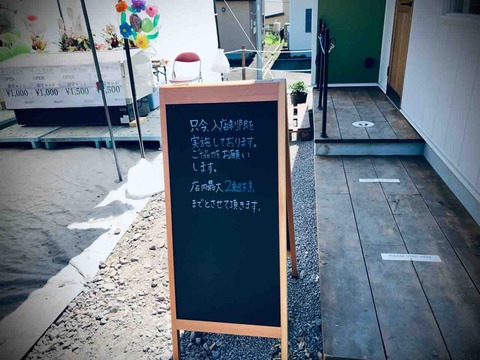 ¥1,000
¥1,500
¥1,000
¥1,500
只今、入店制限を
実施しております。
ご協力をお願い
します。
店内最大2組様
までとさせて頂きます。